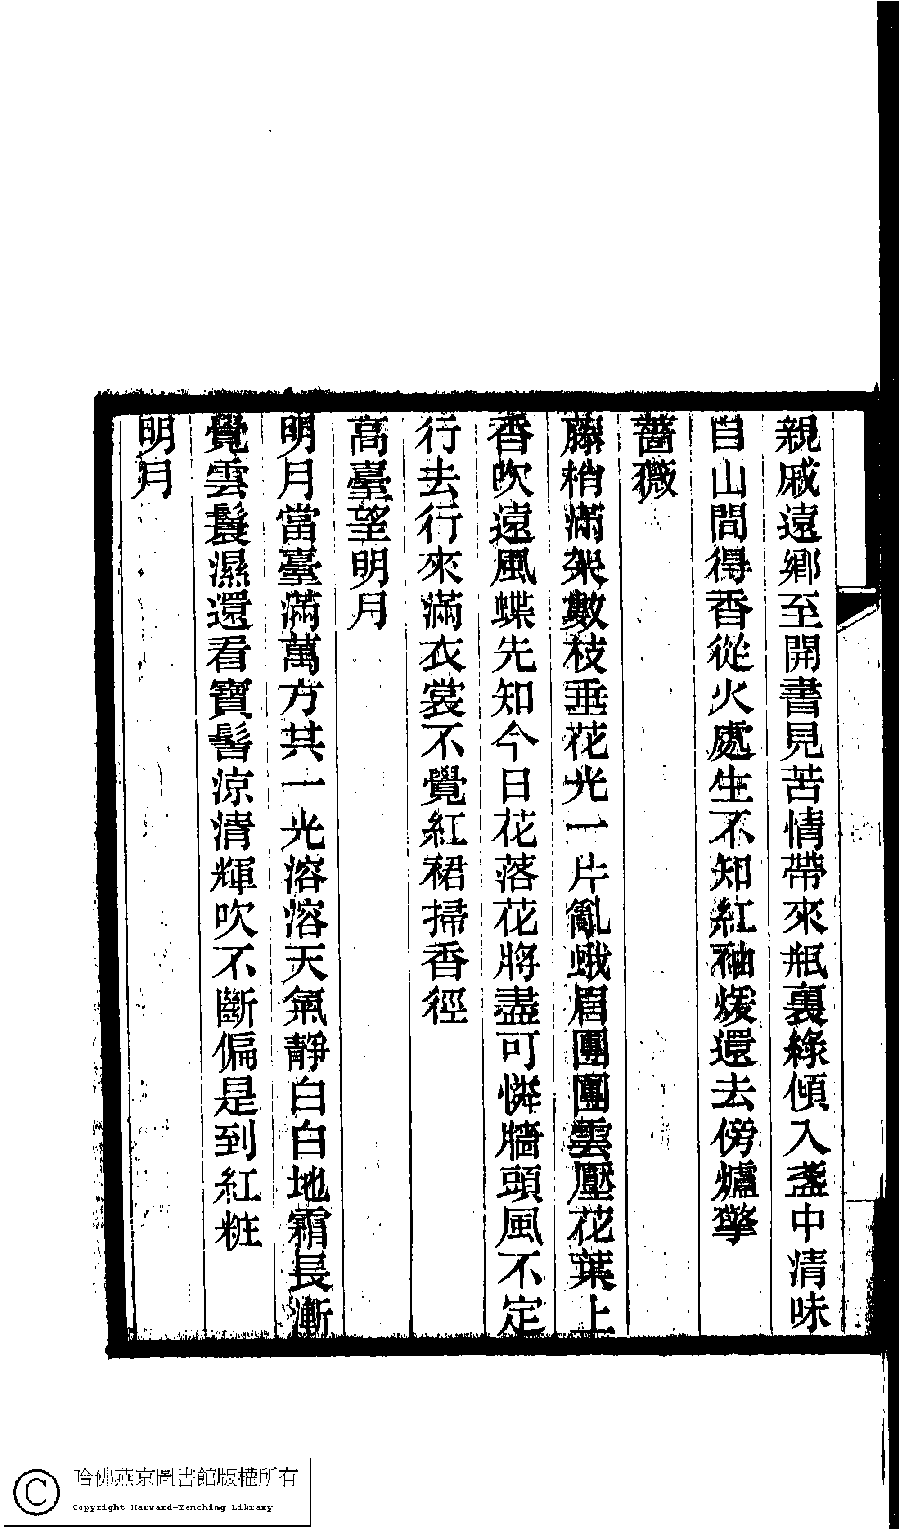 親戚遠鄉至開書見苦情帶來瓶裏綠傾入盞中清味
自山間得香從火處生不知紅袖煖還去傍爐擎
薔薇
藤梢滿架數枝垂花光一片亂蛾眉團團雲壓花葉上
香吹遠風蝶先知今日花落花將盡可憐牆頭風不定
行去行來滿衣裳不覺紅裙掃香徑
高臺望明月
明月當臺滿萬方共一光溶溶天氣靜白白地霜長漸
覺雲鬟濕還看寶髻涼清輝吹不斷偏是到紅粧
明月
哈佛燕京圖書館版權所有
Copyright Harvard-Yenching Library